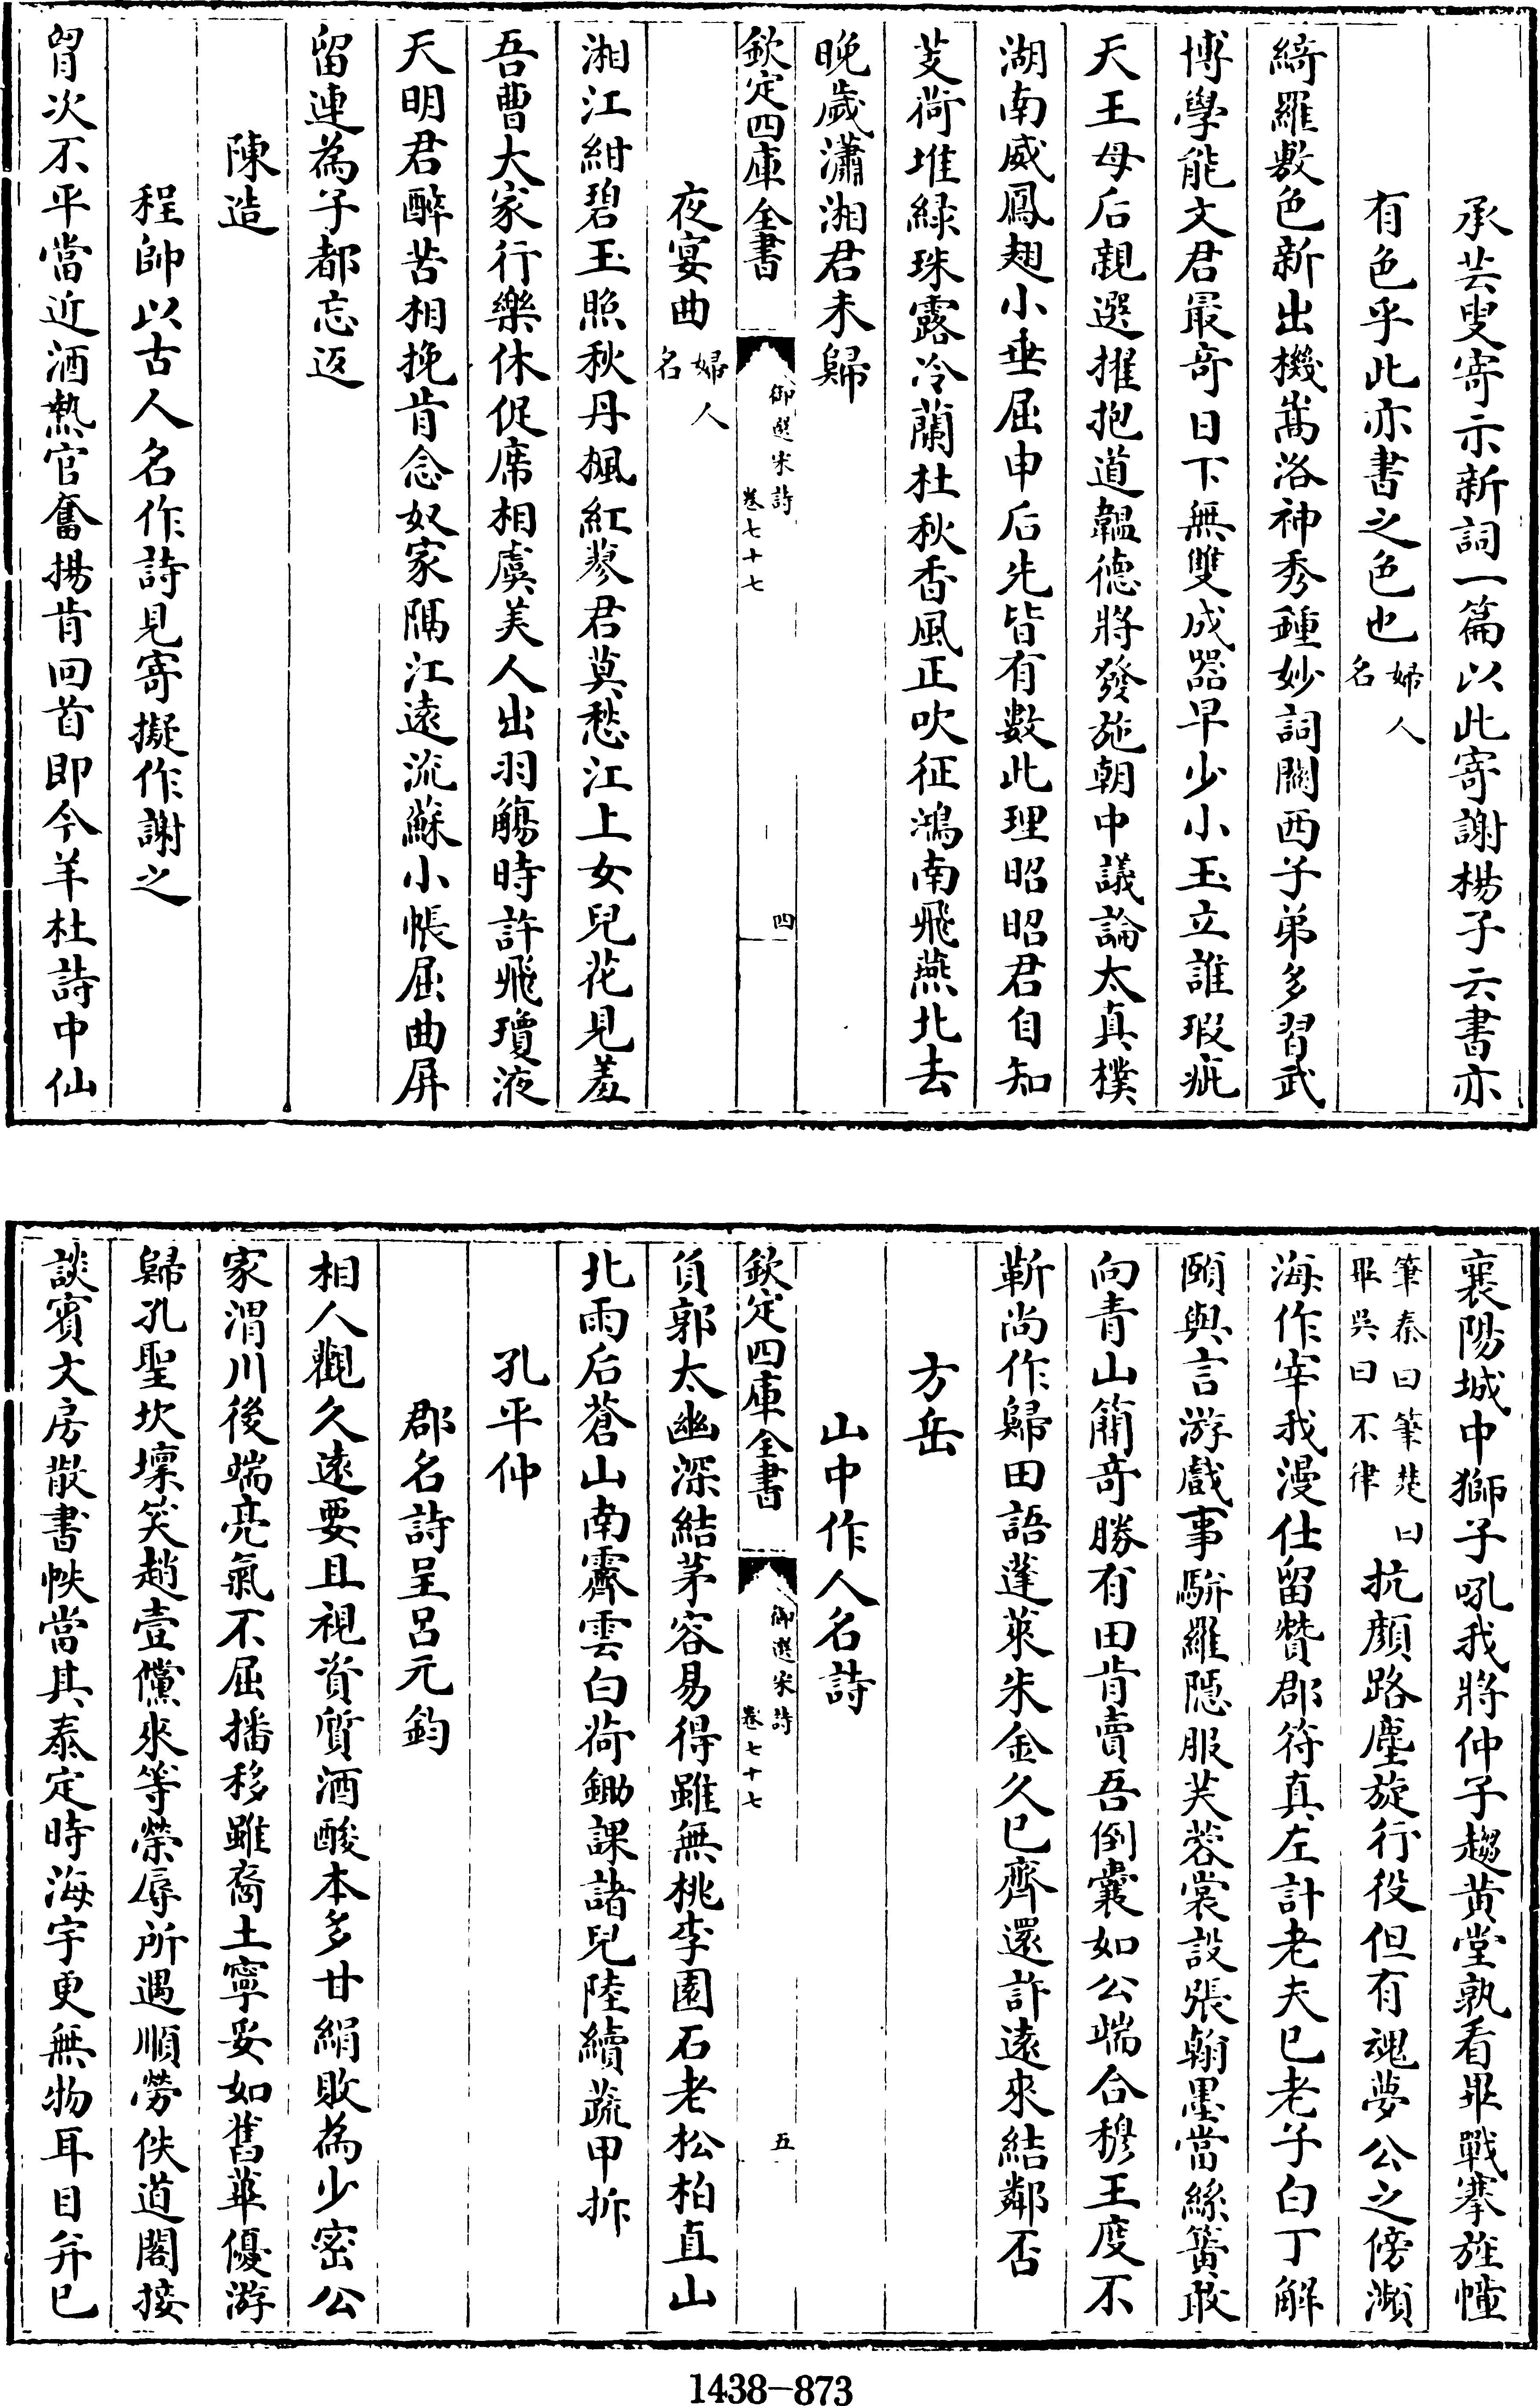 承芸叟寄示新詞一篇以此寄謝楊子云書亦
有色乎此亦書之色也婦人名
綺羅敷色新出機嵩洛神秀鍾妙詞關西子弟多習武
博學能文君最奇日下無雙成器早少小玉立誰瑕疵
天王母后親選擢抱道韞德將發施朝中議論太真樸
湖南威鳳翅小垂屈申后先皆有數此理昭昭君自知
芰荷堆緑珠露冷蘭杜秋香風正吹征鴻南飛燕北去
晚歲瀟湘君未歸
欽定四庫全書 御選宋詩 卷七十七 四
夜宴曲婦人名
湘江紺碧玉照秋丹楓紅蓼君莫愁江上女兒花見羞
吾曹大家行樂休促席相虞美人出羽觴時許飛瓊液
天明君醉苦相挽肯念奴家隔江遠流蘇小帳屈曲屏
留連為子都忘返
陳造
程帥以古人名作詩見寄擬作謝之
胷次不平當近酒熱官奮揚肯回首即今羊杜詩中仙
襄陽城中獅子吼我將仲子趨黄堂孰看畢戰搴旌幢
筆秦曰筆楚曰畢吳曰不律抗顔路塵旋行役但有魂夢公之傍瀕
海作宰我漫仕留贊郡符真左計老夫已老子白丁解
頤與言游戲事駢羅隱服芙蓉裳設張翰墨當絲簧敢
向青山簡奇勝有田肯賣吾倒囊如公端合穆王度不
靳尚作歸田語蓬萊朱金久已齊還許遠來結鄰否
方岳
山中作人名詩
欽定四庫全書 御選宋詩 卷七十七 五
負郭太幽深結茅容易得雖無桃李園石老松柏直山
北雨后蒼山南霽雲白荷鋤課諸兒陸續蔬甲拆
孔平仲
郡名詩呈呂元鈞
相人觀久遠要且視資質酒酸本多甘絹敗為少密公
家渭川後端亮氣不屈播移雖裔土寧妥如舊華優游
歸孔聖坎壈笑趙壹儻來等榮辱所遇順勞佚道閣接
談賓文房散書帙當其泰定時海宇更無物耳目弁已
1438-873